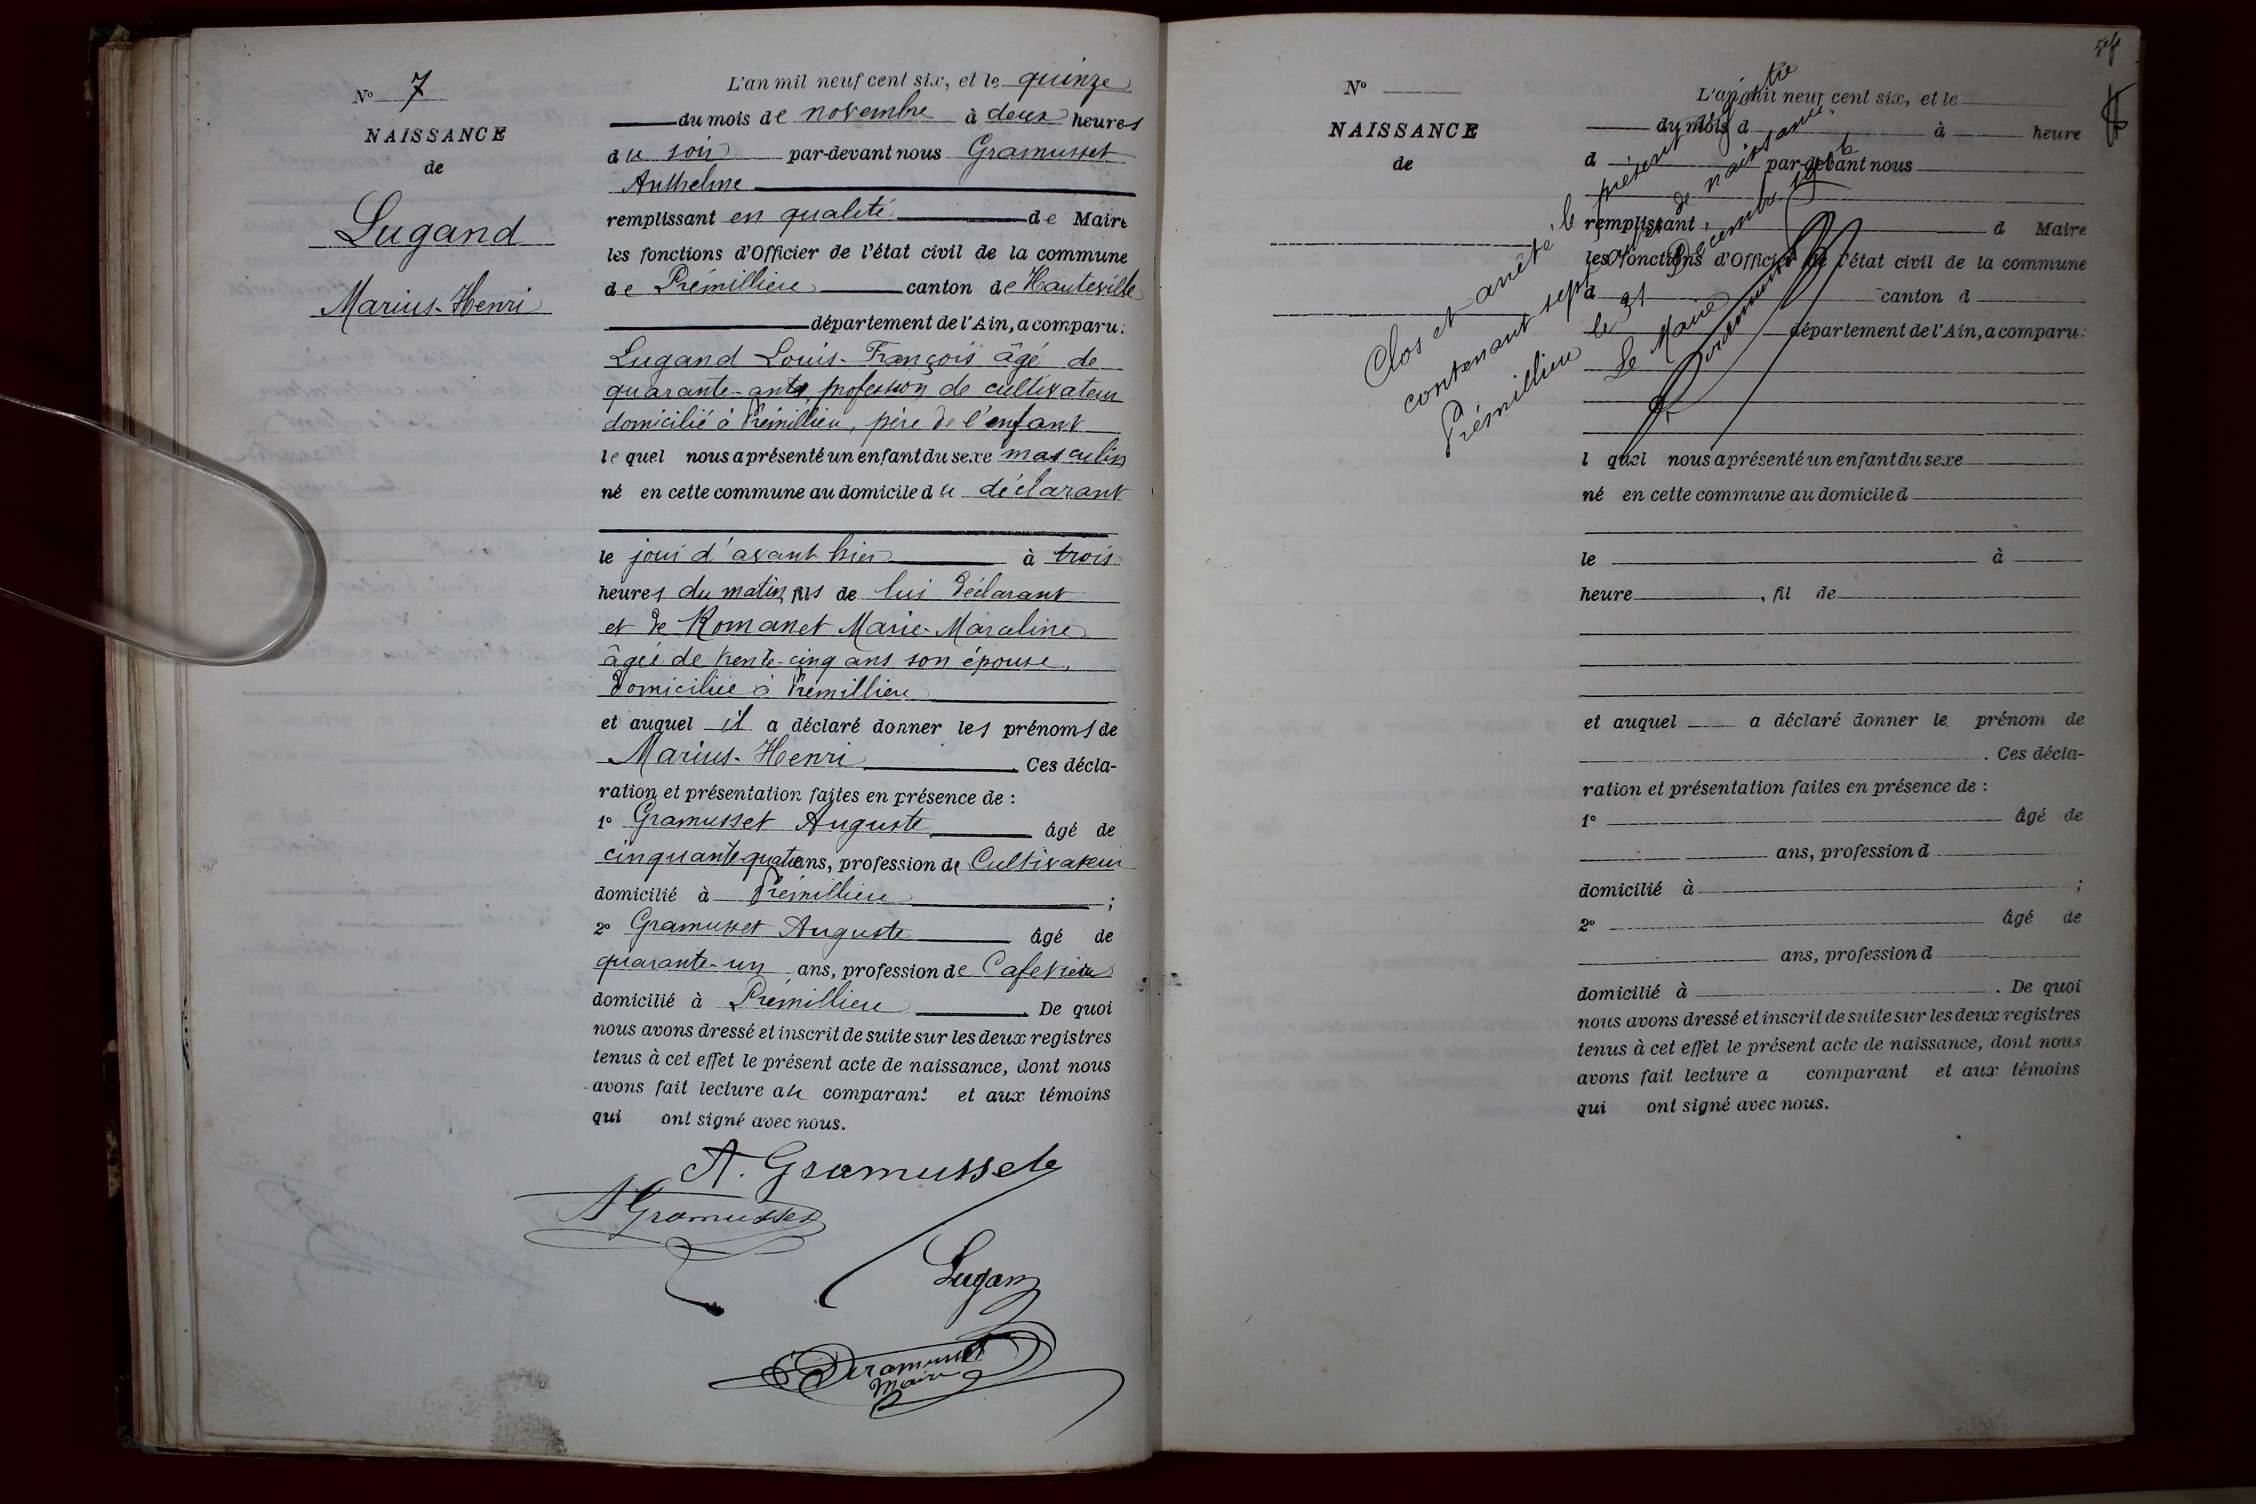 N° 7
NAISSANCE
de
Lugand
Marius-Henri
L'an mil neuf cent six, et le quinze
du mois de novembre à deux heures
du soir par-devant nous Gramusset
Anthelme
remplissant en qualité de Maire
les fonctions d'Officier de l'état civil de la commune
de Prémillieu canton de Hauteville
département de l'Ain, a comparu:
Lugand Louis-François âgé de
quarante-ants, profession de cultivateur
domicilié à Prémillieu, père de l'enfant
lequel nous a présenté un enfant du sexe masculin
né en cette commune au domicile du déclarant
le jour d'avant hier à trois
heures du matin, fils de lui déclarant
et de Romanet Marie-Marceline
âgée de trente-cinq ans son épouse,
domiciliée à Prémillieu
et auquel il a déclaré donner les prénoms de
Marius-Henri Ces décla-
ration et présentation faites en présence de :
1° Gramusset Auguste âgé de
cinquante-quatre ans, profession de Cultivateur
domicilié à Prémillieu ;
2° Gramusset Auguste âgé de
quarante-un ans, profession de Cafetier
domicilié à Prémillieu . De quoi
nous avons dressé et inscrit de suite sur les deux registres
tenus à cet effet le présent acte de naissance, dont nous
avons fait lecture au comparant et aux témoins
qui ont signé avec nous.
A. Gramusset
A Gramusset
Lugan
Gramusset
Maire
N°
NAISSANCE
de
L'an mil neuf cent six, et le
du mois d à heure
d par-devant nous
remplissant d Maire
les fonctions d'Officier de l'état civil de la commune
d canton d
département de l'Ain, a comparu:
l quel nous a présenté un enfant du sexe
né en cette commune au domicile d
le à
heure , fil de
et auquel a déclaré donner le prénom de
. Ces décla-
ration et présentation faites en présence de :
1° âgé de
ans, profession d
domicilié à ;
2° âgé de
ans, profession d
domicilié à . De quoi
nous avons dressé et inscrit de suite sur les deux registres
tenus à cet effet le présent acte de naissance, dont nous
avons fait lecture a comparant et aux témoins
qui ont signé avec nous.
Clos et arrêté le présent registre
contenant sept actes de naissance.
Prémillieu le 31 Décembre 1906
Le Maire